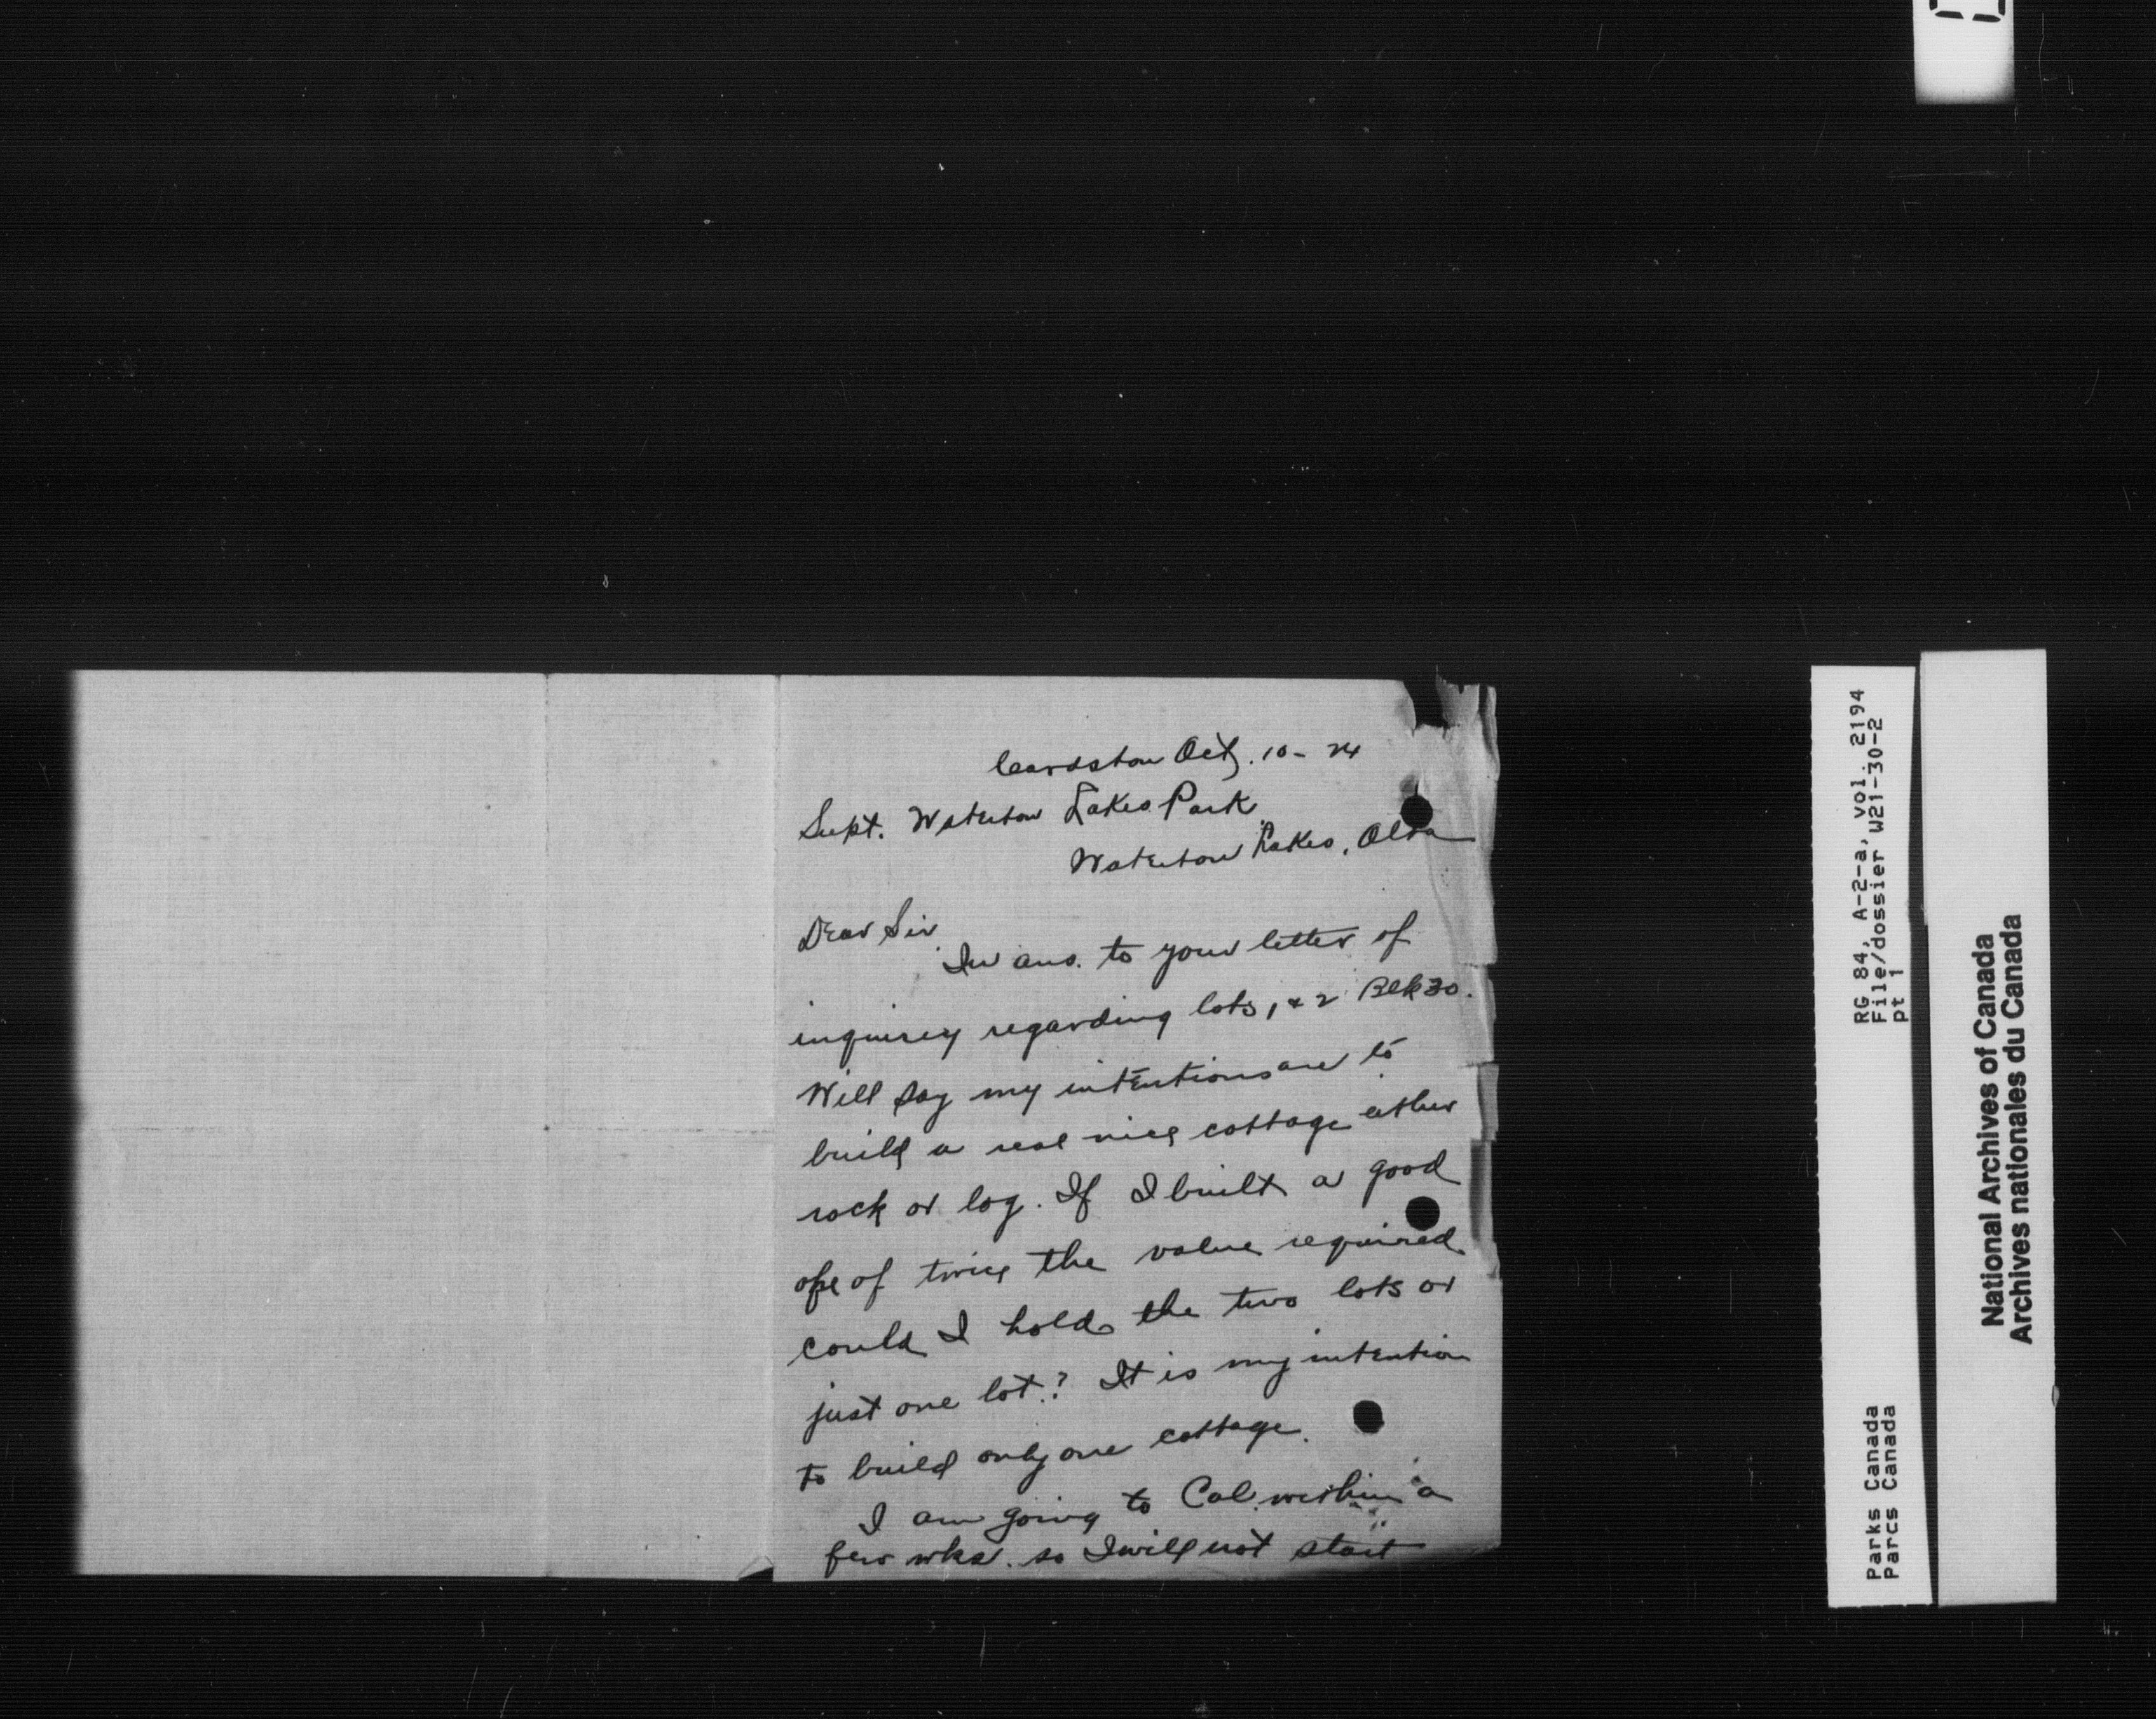 Cardston Oct. 10 - 24
Supt. Waterton Lakes Park
Waterton Lakes, Alta
Dear Sir
In ans. to your letter of
inquirey regarding lots, 1 & 2 Blk 30.
Will say my intentions are to
build a real nice cottage either
rock or log. If I built a good
of twice the value required
could I hold the two lots or
just one lot? It is my intention
to build only one cottage.
I am going to Cal. within a
few wks. so I will not start
RG 84, A-2-a, vol. 2194
File/dossier W21-30-2
pt 1
Parks Canada
Parcs Canada
National Archives of Canada
Archives nationales du Canada